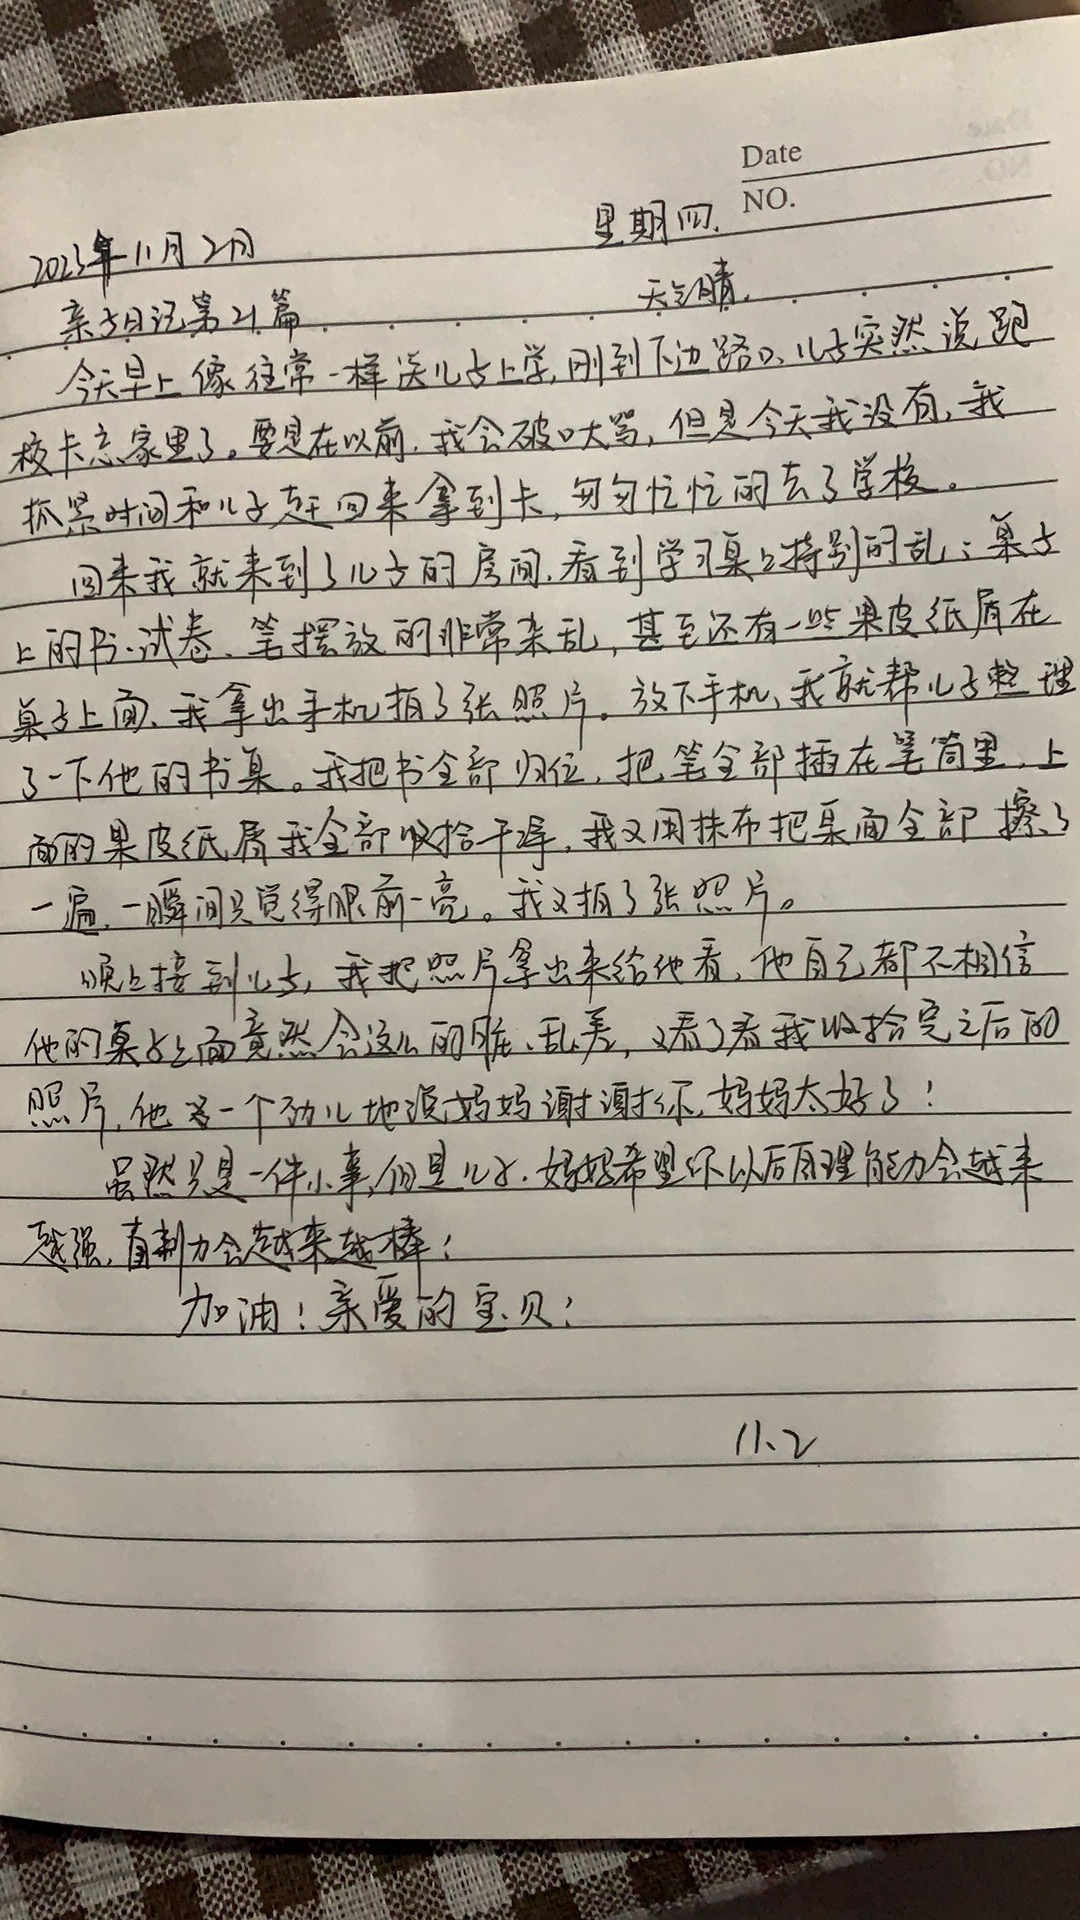 Date
NO.
2023年11月2日 星期四.
亲子日记第21篇 天气晴.
今天早上像往常一样送儿子上学,刚到下边路口,儿子突然说跑
校卡忘家里了。要是在以前,我会破口大骂,但是今天我没有,我
抓紧时间和儿子赶回来拿到卡,匆匆忙忙的去了学校。
回来我就来到了儿子的房间,看到学习桌上特别的乱;桌子
上的书、试卷、笔摆放的非常杂乱,甚至还有一些果皮纸屑在
桌子上面、我拿出手机拍了张照片。放下手机,我就帮儿子整理
了一下他的书桌。我把书全部归位,把笔全部插在笔筒里,上
面的果皮纸屑我全部收拾干净,我又用抹布把桌面全部擦了
一遍,一瞬间只觉得眼前一亮。我又拍了张照片。
晚上接到儿子,我把照片拿出来给他看,他自己都不相信
他的桌子上面竟然会这么的脏、乱、差,又看了看我收拾完之后的
照片,他又一个劲儿地说妈妈谢谢你,妈妈太好了!
虽然只是一件小事,但是儿子,妈妈希望你以后自理能力会越来
越强,自制力会越来越棒!
加油!亲爱的宝贝!
11、2